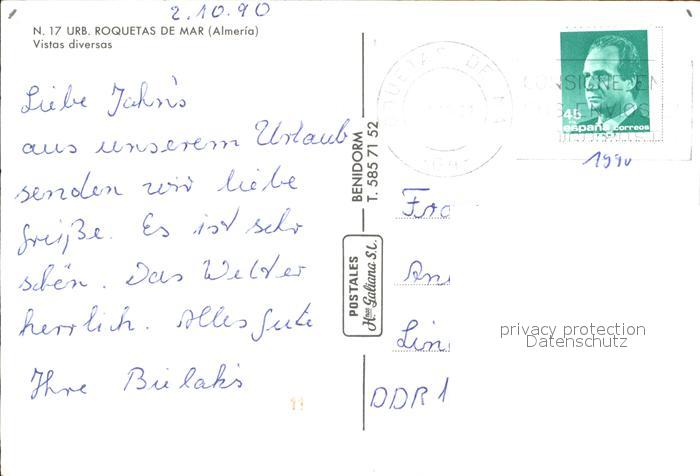 2.10.90
N. 17 URB. ROQUETAS DE MAR (Almería)
Vistas diversas
Liebe Jahn's
aus unserem Urlaub
senden wir liebe
Grüße. Es ist sehr
schön. Das Wetter
herrlich. Alles Gute
Ihre Bielak's
11
BENIDORM
T. 585 71 52
POSTALES
Hnos Galiana S.L.
ROQUETAS DE MA
CONSIGNE EN
45
españa correos
1990
Fra
An
Lin
DDR 1
privacy protection
Datenschutz